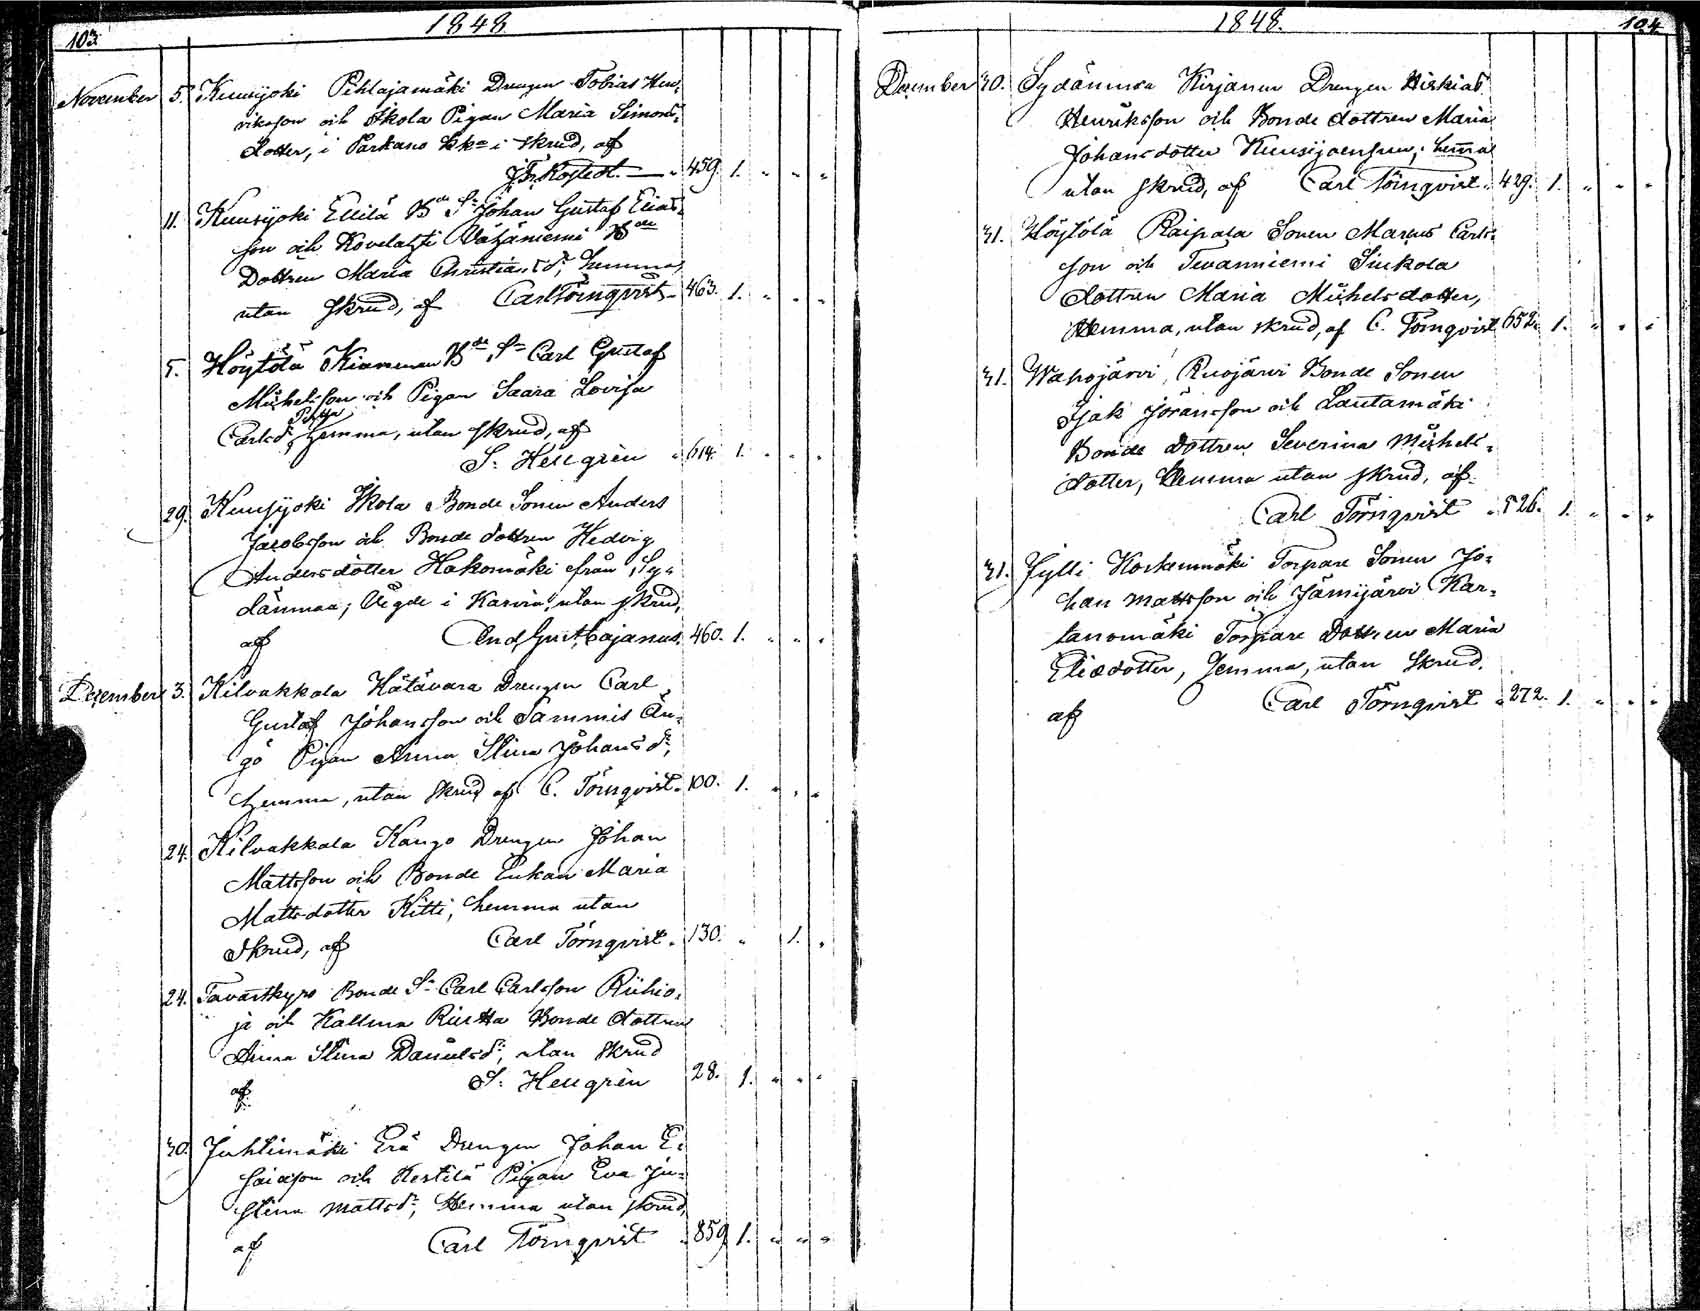 103
1848.
November 5. Kuusijoki Pihlajamäki Drengen Tobias Hen,
riksson och Skola Pigan Maria Simons,
dotter, i Parkano kka i skrud, af
459. 1. " " "
11. Kuusijoki Eliilä Bde Sn Johan Gustaf Elias,
son och Kovelahti Vähäniemi Bde
Dottren Maria Christiansdr, hemma,
utan skrud, af Carl Törnqvist 463. 1. " " "
5. Höytölä Kiaminen Bde Sn Carl Gustaf
Michelsson och Pigan Saara Lovisa
Carlsdr hemma, utan skrud, af
S: Hellgrén " 614. 1. " " "
29. Kuusijoki Skola Bonde Sonen Anders
Jacobsson och Bonde dottren Hedvig
Andersdotter Hakomäki från Sy,
dänmaa; Vigde i Karvia, utan skrud,
af And. Gust. Cajanus, 460. 1. " " "
December 3. Kilvakkala Hätävara Drengen Carl
Gustaf Johansson och Sammis Än,
gö Pigan Anna Stina Johansdr,
hemma, utan skrud af C. Törnqvist " 100. 1. " " "
24. Kilvakkala Kango Drengen Johan
Mattsson och Bonde Enkan Maria
Mattsdotter Kitti, hemma utan
skrud, af Carl Törnqvist " 130. " 1. "
24. Tavastkyro Bonde Sn Carl Carlsson Riihio,
ja och Kallina Riitta Bonde dottren
Anna Stina Danielsdr, utan skrud
af S: Hellgrén 28. 1. " " "
30. Juhtimäki Erä Drengen Johan E,
saiasson och Kestilä Pigan Eva Ju,
stina Mattsdr, Hemma utan skrud,
af Carl Törnqvist " 859 1. " " "
1848.
104
December 30. Sydänmaa Kirjanen Drengen Hiskias
Henriksson och Bonde dottren Maria
Johansdotter Kuusijoensuu, hemma
utan skrud, af Carl Törnqvist " 429. 1. " " "
31. Höytölä Raipala Sonen Marcus Carls,
son och Tevanniemi Siukola
dottren Maria Michelsdotter,
Hemma, utan skrud, af C. Törnqvist 652. 1. " " "
31. Wahojärvi, Ruojärvi Bonde Sonen
Isak Jöransson och Lautamäki
Bonde Dottren Severina Michels,
dotter, Hemma utan skrud, af
Carl Törnqvist " 526. 1. " " "
31. Jylli Koskenmäki Torpare Sonen Jo,
han Mattsson och Jämijärvi Kar,
tanomäki Torpare Dottren Maria
Eliedotter, Hemma, utan Skrud,
af Carl Törnqvist " 272. 1. " " "